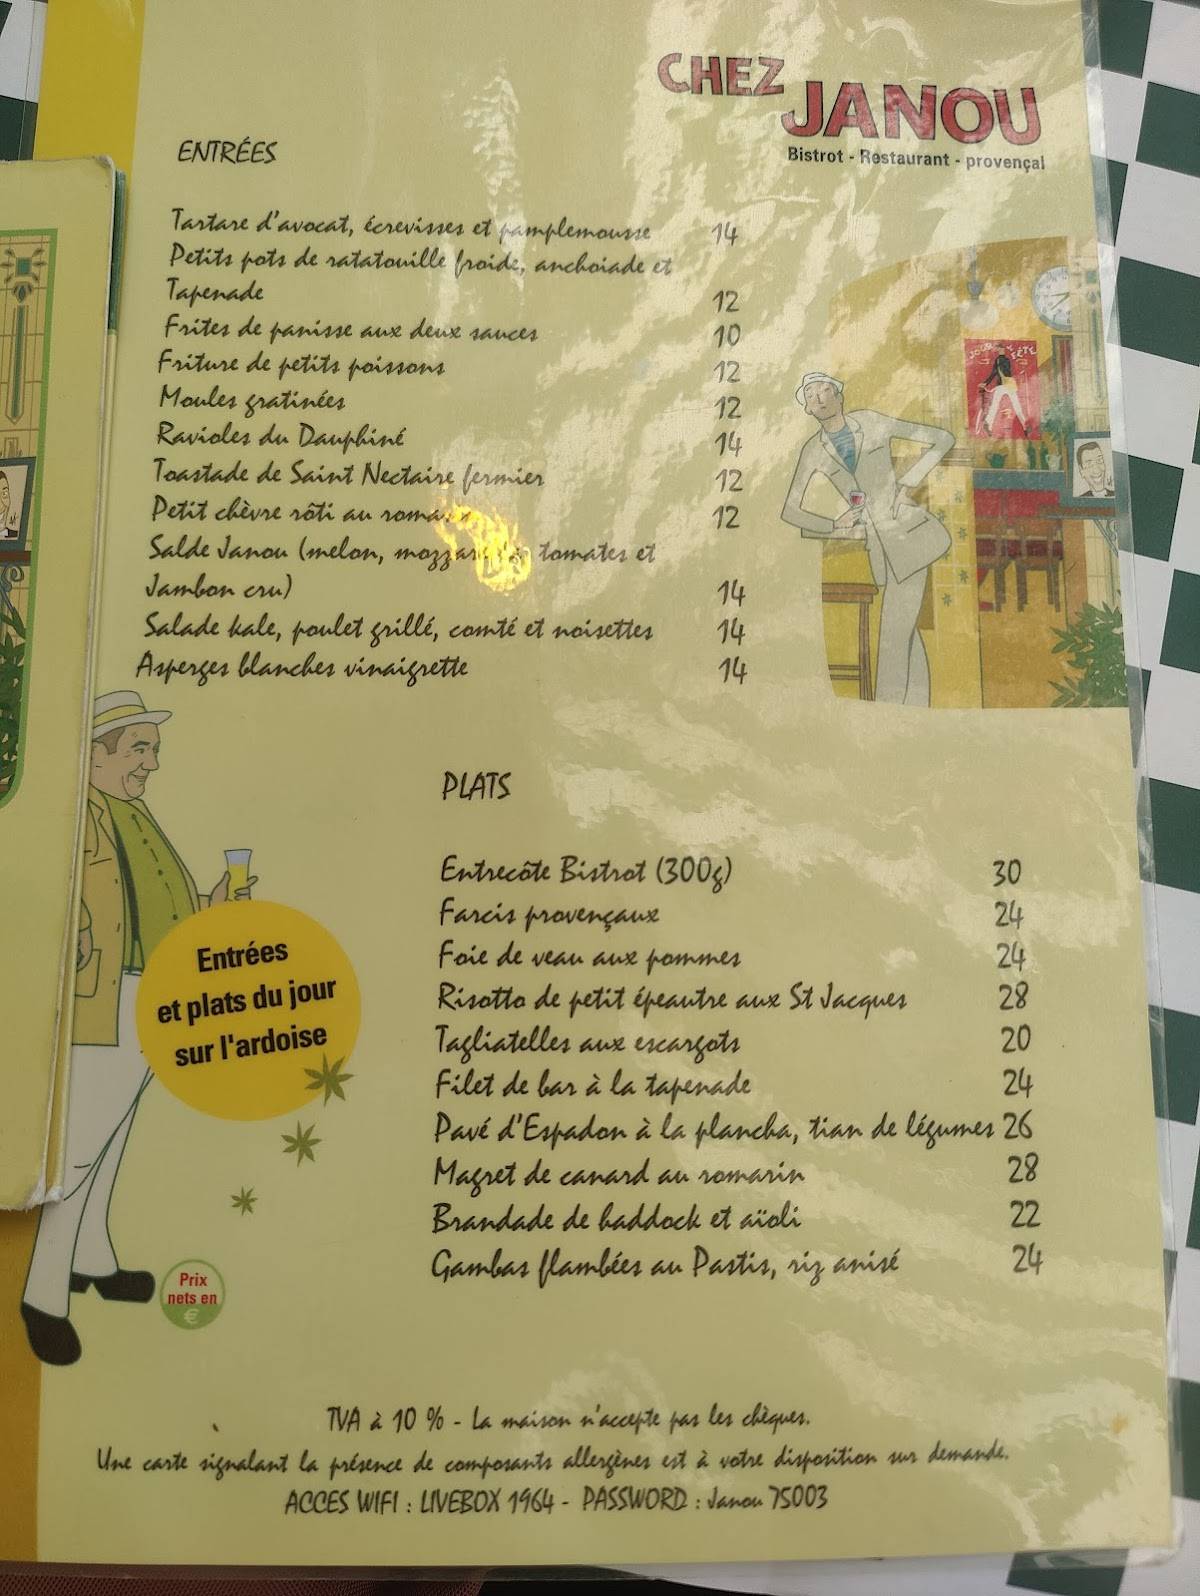 CHEZ
JANOU
Bistrot - Restaurant - provençal
ENTRÉES
Tartare d'avocat, écrevisses et pamplemousse 14
Petits pots de ratatouille froide, anchoiade et
Tapenade 12
Frites de panisse aux deux sauces 10
Friture de petits poissons 12
Moules gratinées 12
Ravioles du Dauphiné 14
Toastade de Saint Nectaire fermier 12
Petit chèvre rôti au 12
Salde Janou (melon, tomates et
Jambon cru) 14
Salade kale, poulet grillé, comté et noisettes 14
Asperges blanches vinaigrette 14
JOUR DE FÊTE
PLATS
Entrecôte Bistrot (300g) 30
Farcis provençaux 24
Foie de veau aux pommes 24
Risotto de petit épeautre aux St Jacques 28
Tagliatelles aux escargots 20
Filet de bar à la tapenade 24
Pavé d'Espadon à la plancha, tian de légumes 26
Magret de canard au romarin 28
Brandade de haddock et aïoli 22
Gambas flambées au Pastis, riz anisé 24
Entrées
et plats du jour
sur l'ardoise
Prix
nets en
€
TVA à 10 % - La maison n'accepte pas les chèques.
Une carte signalant la présence de composants allergènes est à votre disposition sur demande.
ACCES WIFI : LIVEBOX 1964 - PASSWORD : Janou 75003